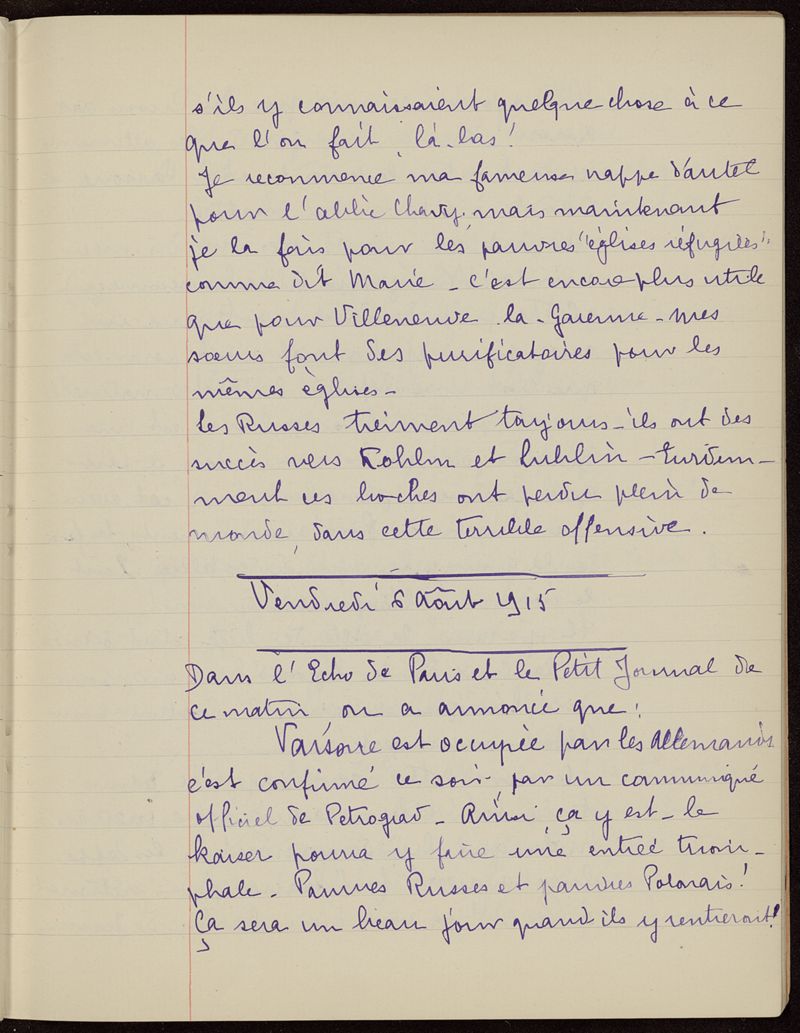 s'ils y connaissaient quelque chose à ce
que l'on fait là-bas!
Je recommence ma fameuse nappe d'autel
pour l'abbé Chavy, mais maintenant
je la fais pour les pauvres "églises réfugiées"
comme dit Marie - c'est encore plus utile
que pour Villeneuve-la-Garenne - mes
sœurs font des purificatoires pour les
mêmes églises -
Les Russes tiennent toujours - ils ont des
succès vers Kohlm et Lublin -
ment ces boches ont perdu plein de
monde, dans cette terrible offensive.
Vendredi 6 Août 1915
Dans l'Echo de Paris et le Petit Journal de
ce matin, on a annoncé que:
Varsovie est occupée par les Allemands
c'est confirmé ce soir, par un communiqué
officiel de Petrograd - Ainsi ça y est - le
kaiser pourra y faire une entrée triom-
phale - Pauvres Russes et pauvres Polonais!
Ça sera un beau jour quand ils y rentreront!